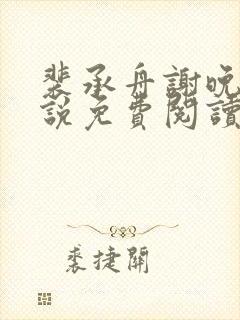 裴承舟謝晚
說免費閱讀
裘捷開